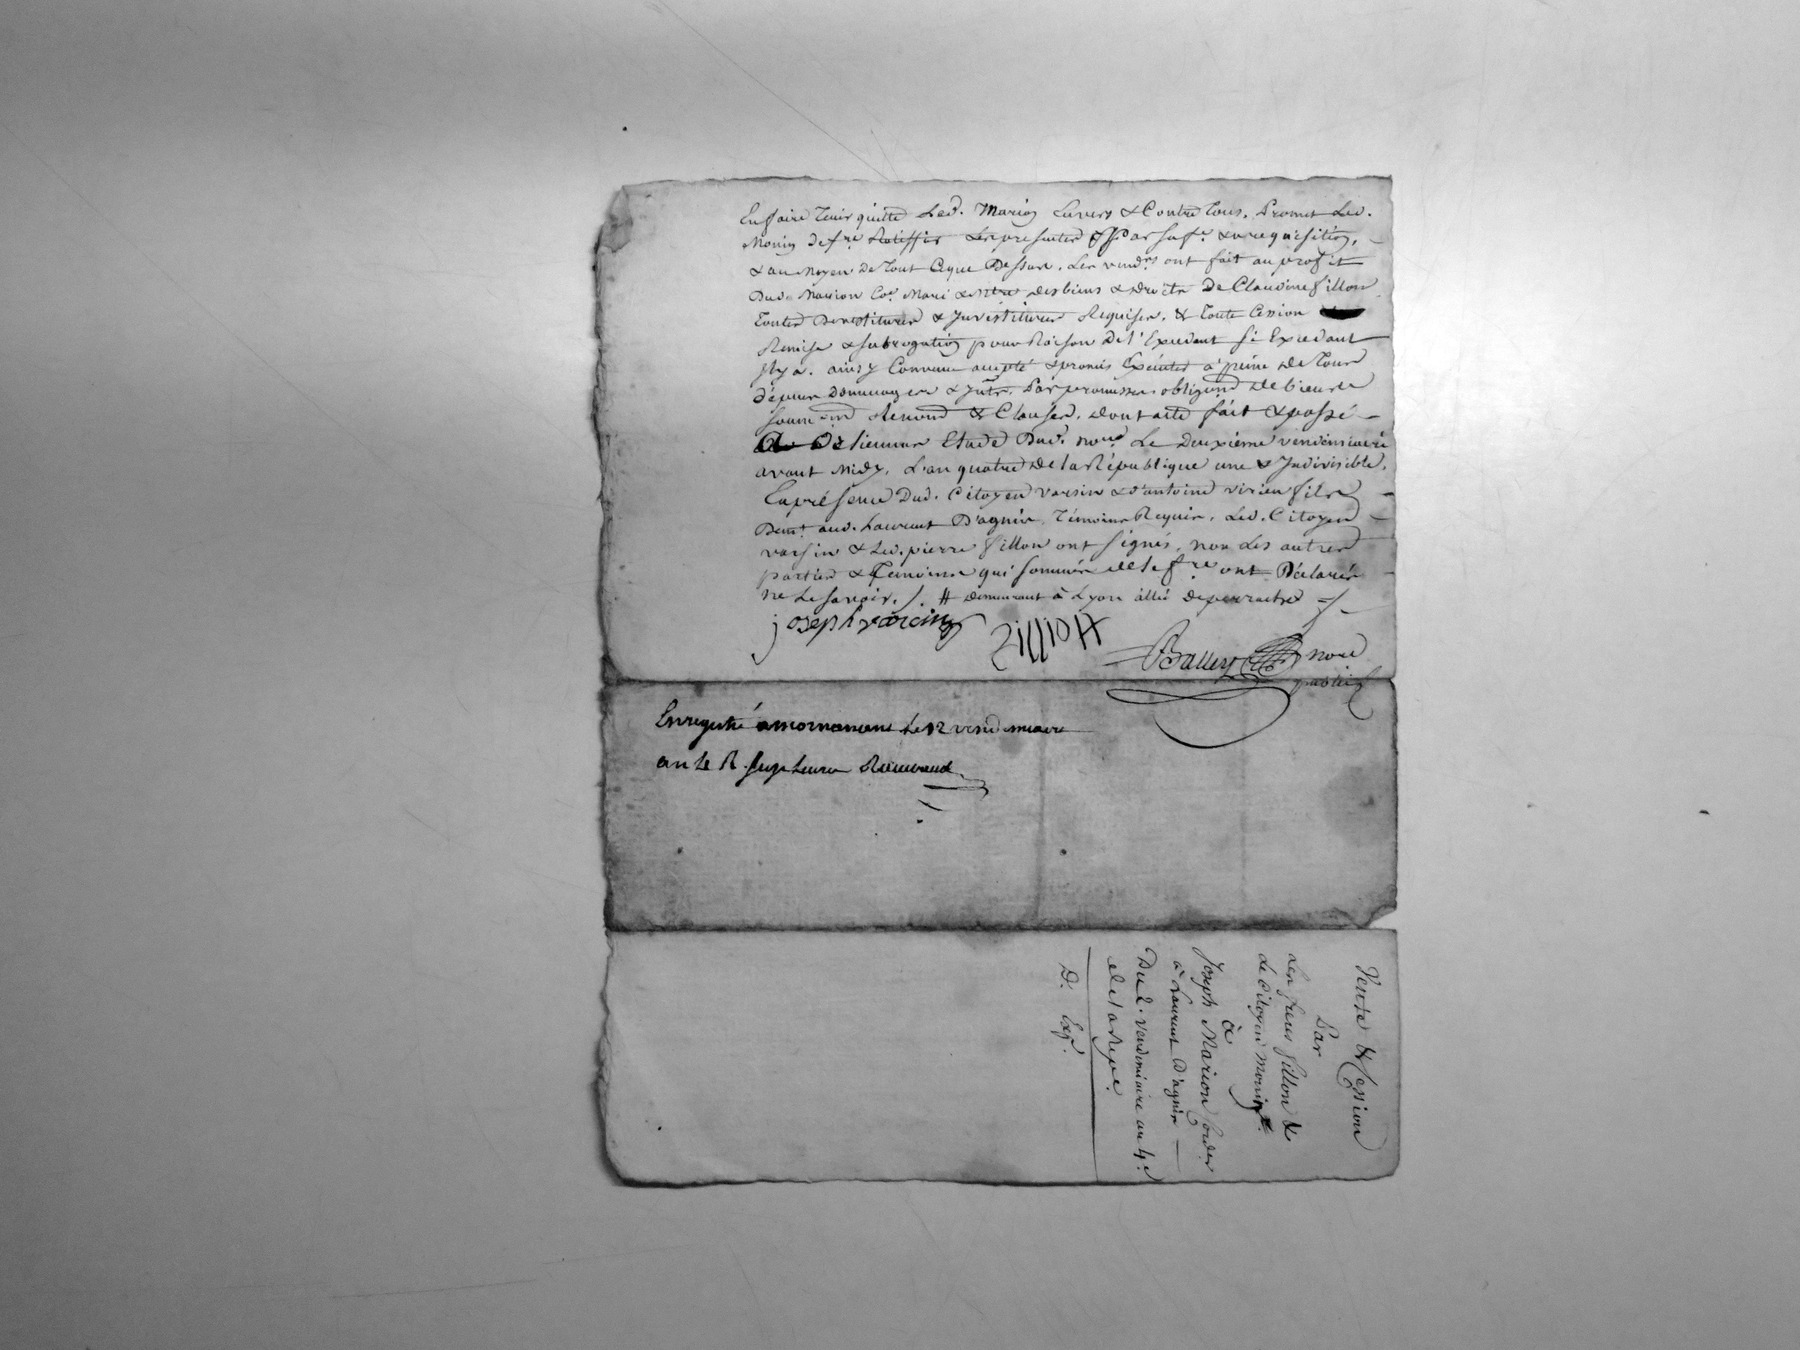 En faire Tenir quitte Led. Marion Envers & Contre Tous. Promet Led.
Monin de fre Ratiffier les presentes par sa fe. & requisition,
& au moyen de Tout Ceque Dessus. Les vendrs ont fait au profit
Dud. Marion Co. Mari & des biens & droits De Claudine fillon
Toutes Devestitures & Investitures Requises. & Toute Cession
Remise & subrogation pour Raison de l'Excedant si Excedant
Il y a. ainsy Convenu accepté & promis Executer à peine de Tous
dépens Dommages & Jnts. Par promesses obligaons de biens
soumon Renonon & Clauses. dont acte fait & passé
Etude Dud. nore Le Deuxième vendemiaire
avant Midy, L'an quatre de la République une & Jndivisible,
En présence Dud. Citoyen varsin & d'antoine virieu fils
Demt. aud. Laurent D'agnir, Témoins Requis. Led. Citoyen
varsin & Led. pierre fillon ont signés, non Les autres
parties & Temoins qui sommés de le fre ont Déclarés
ne le savoir. /. # demeurant à Lyon allée
joseph varcin
fillion
Ballet nore
public
Enregistré a mornanens le 12 vendemiaire
an 4e R.
Vente & Cession
Par
Les freres fillon &
Le Citoyen Monin
à
Joseph Marion
à Laurent D'agnir
Du 2. vendemiaire an 4e.
de la Repe.
D. Expn.